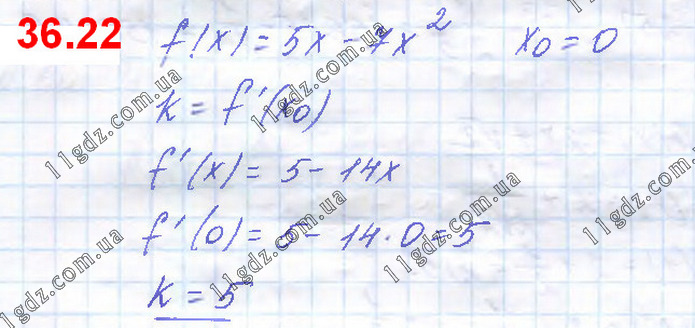 36.22
f(x) = 5x - 7x² x₀ = 0
k = f'(x₀)
f'(x) = 5 - 14x
f'(0) = 5 - 14·0 = 5
k = 5
11gdz.com.ua
11gdz.com.ua
11gdz.com.ua
11gdz.com.ua
11gdz.com.ua
11gdz.com.ua
11gdz.com.ua
11gdz.com.ua